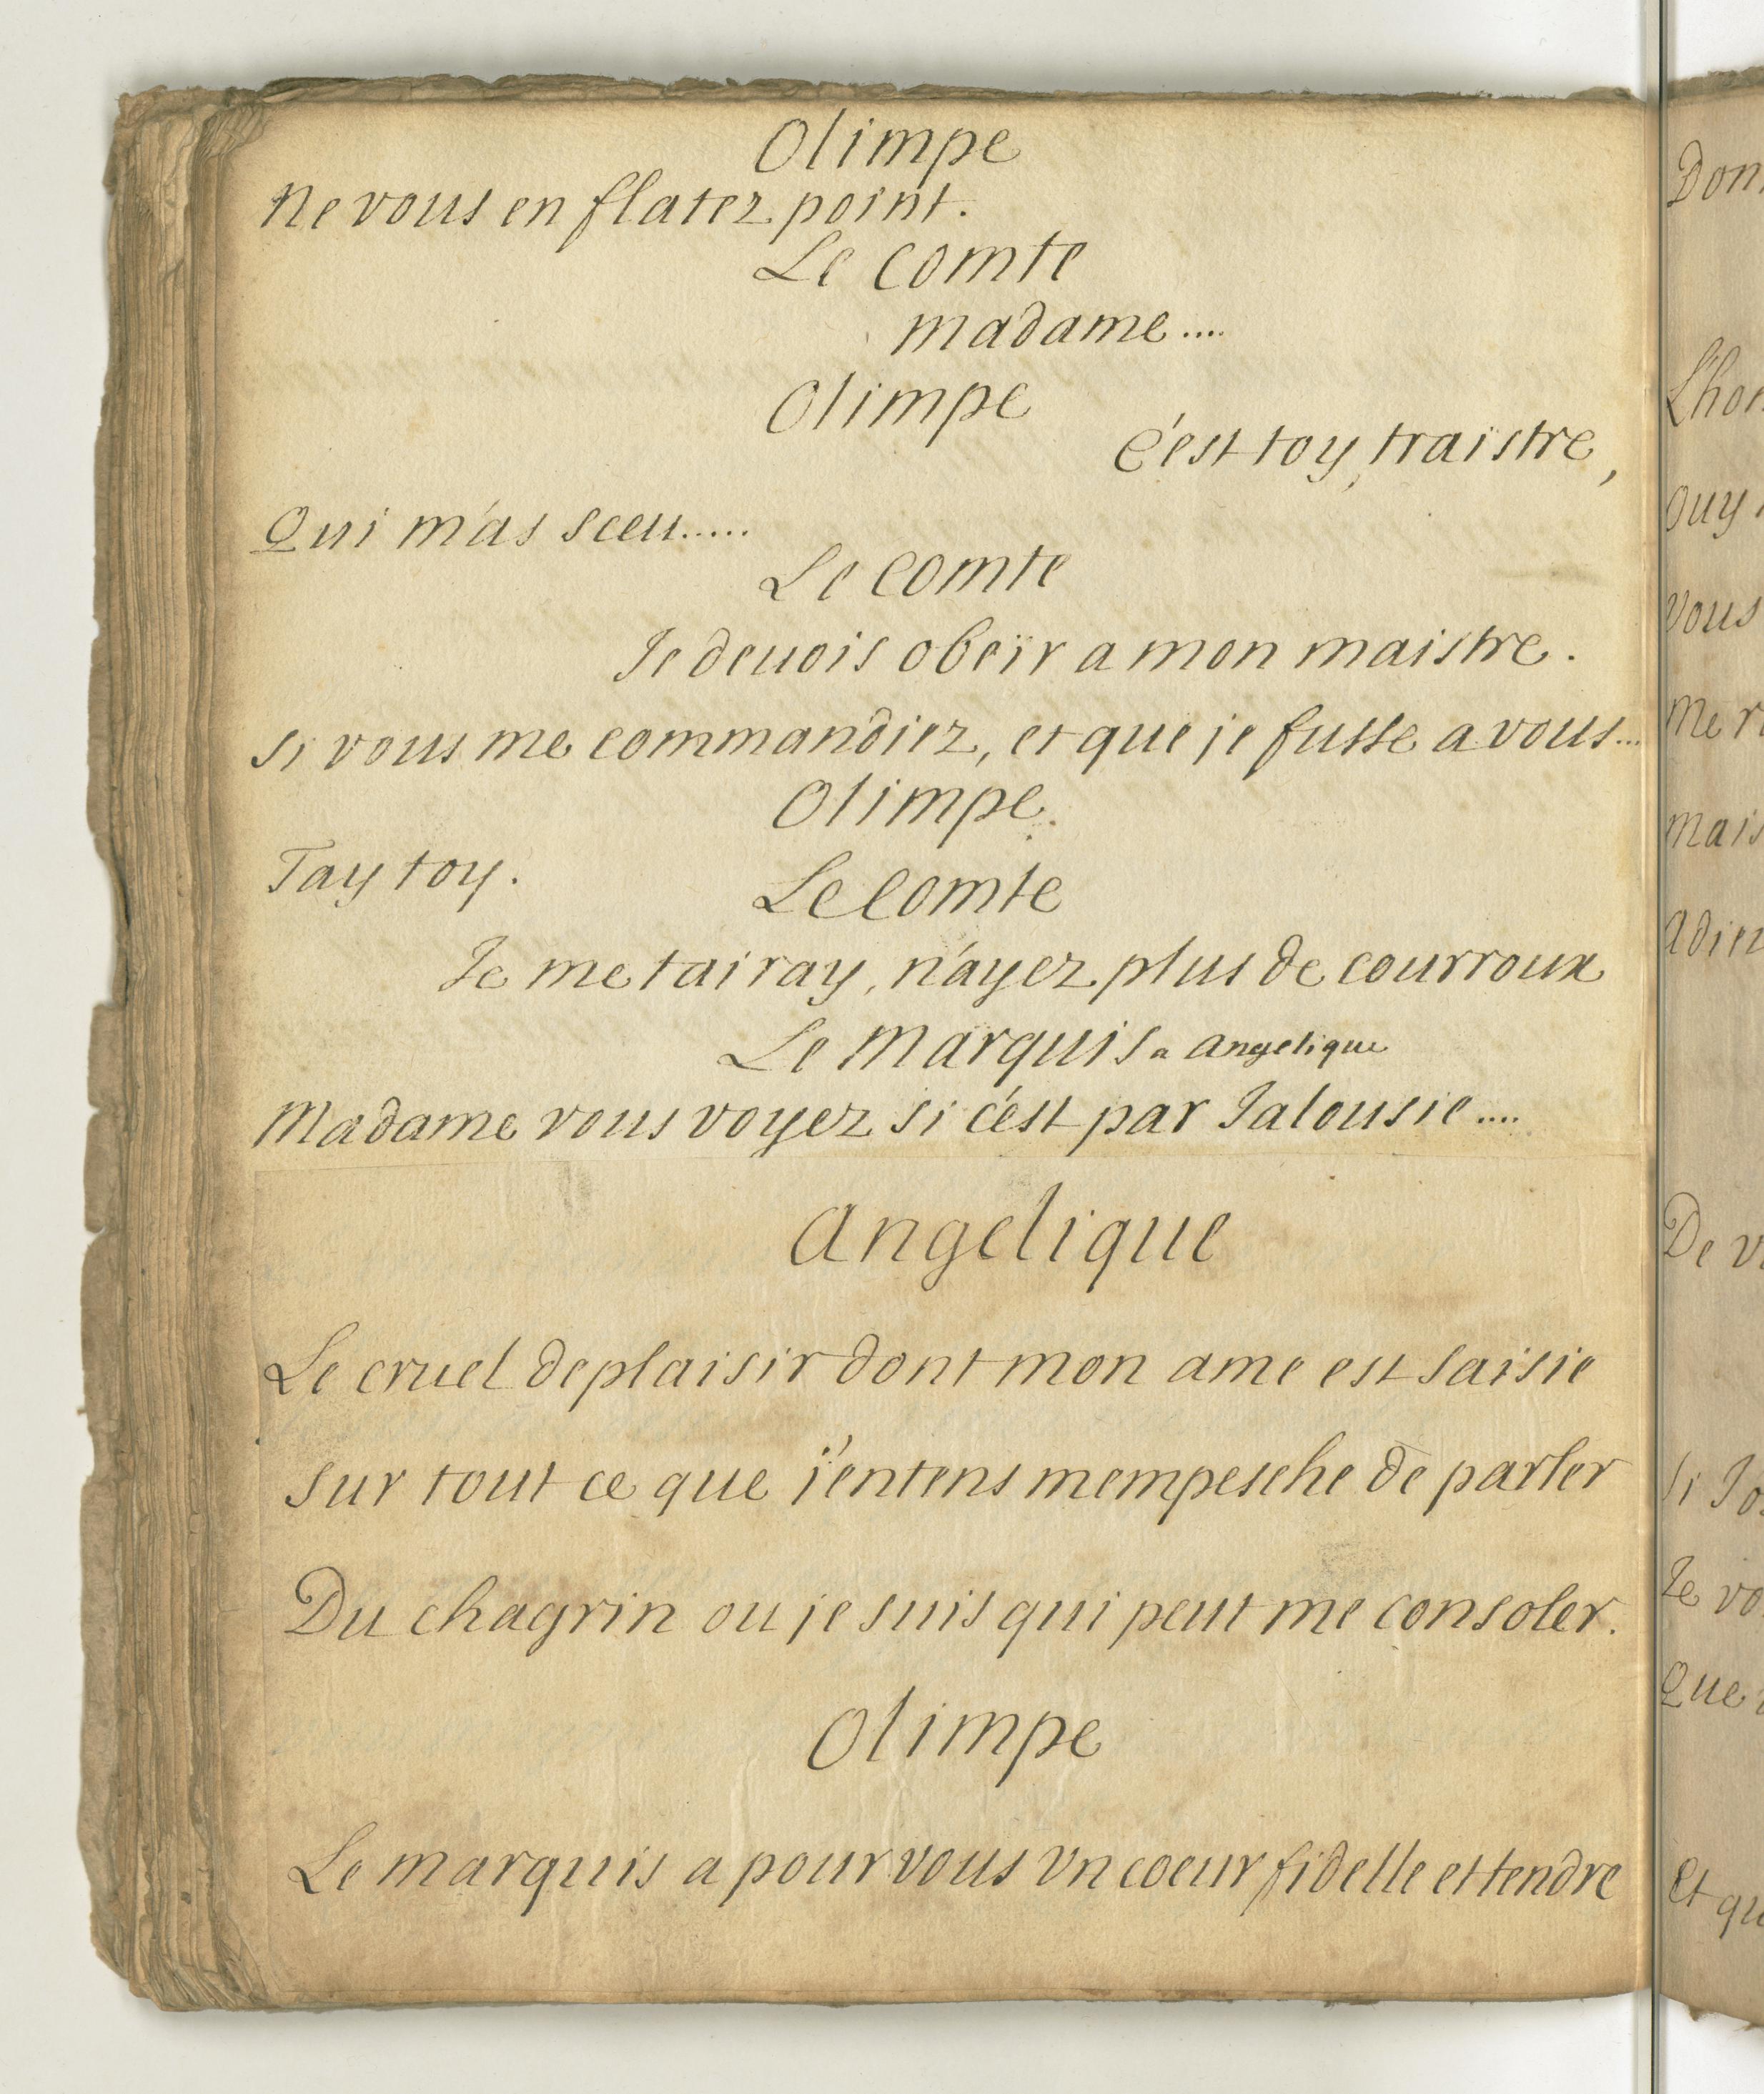 Olimpe
Ne vous en flatez point.
Le comte
madame....
Olimpe
C'est toy, traistre,
Qui m'as sceu.....
Le comte
Je deuois obeïr a mon maistre.
si vous me commandiez, et que je fusse a vous...
Olimpe.
Tay toy.
Le comte
Je me tairay, n'ayez plus de courroux
Le marquis a angelique
Madame vous voyez si c'est par Jalousie....
Angelique
Le cruel deplaisir dont mon ame est saisie
sur tout ce que j'entens mempesche de parler
Du chagrin ou je suis qui peut me consoler.
Olimpe
Le marquis a pour vous vn coeur fidelle et tendre
Don
L'hon
ouy
vous
me r
mais
adiez
De v
si J'os
Je vo
Que
et qu